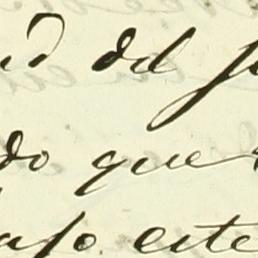 d del
do que
aso este